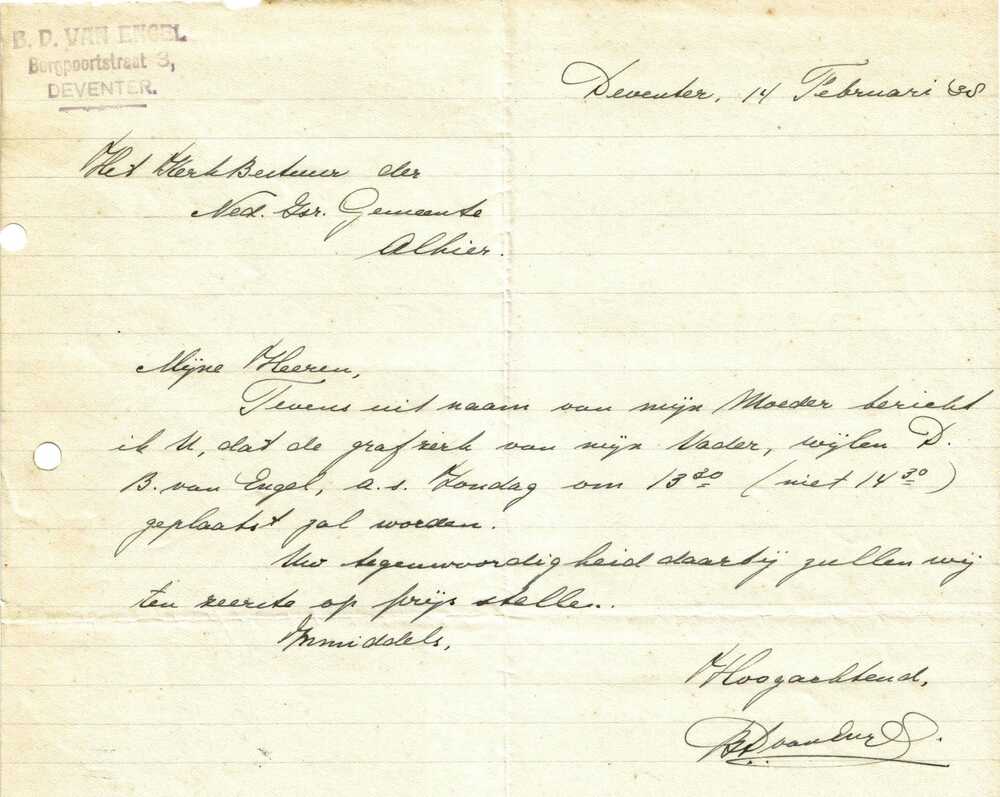 B. D. VAN ENGEL
Bergpoortstraat 3,
DEVENTER.
Deventer, 14 Februari '38
Het Kerkbestuur der
Ned. Isr. Gemeente
Alhier.
Mijne Heeren,
Tevens uit naam van mijn Moeder bericht
ik U, dat de grafzerk van mijn Vader, wijlen D.
B. van Engel, a.s. Zondag om 13 30 (niet 14 30)
geplaatst zal worden.
Uw tegenwoordigheid daarbij zullen wij
ten zeerste op prijs stellen.
Inmiddels,
Hoogachtend,
BD van Engel.